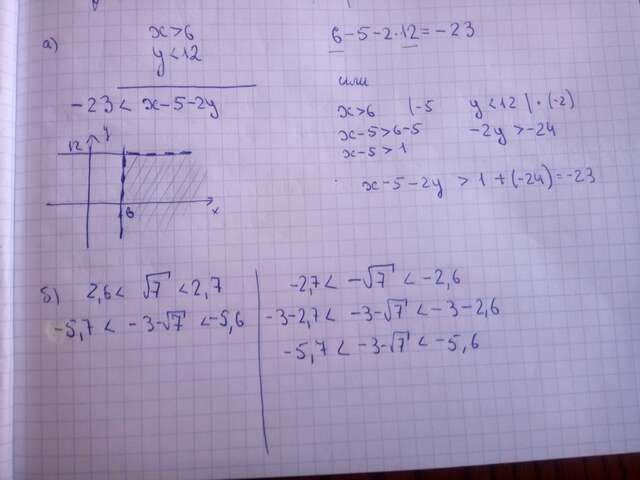 а)
x>6
y<12
6-5-2·12=-23
-23< x-5-2y
12
y
6
x
или
x>6 |-5
x-5>6-5
x-5>1
y<12 |·(-2)
-2y>-24
x-5-2y > 1+(-24)=-23
б) 2,6< √7 <2,7
-5,7 < -3-√7 <-5,6
-2,7< -√7 <-2,6
-3-2,7< -3-√7 <-3-2,6
-5,7 < -3-√7 <-5,6